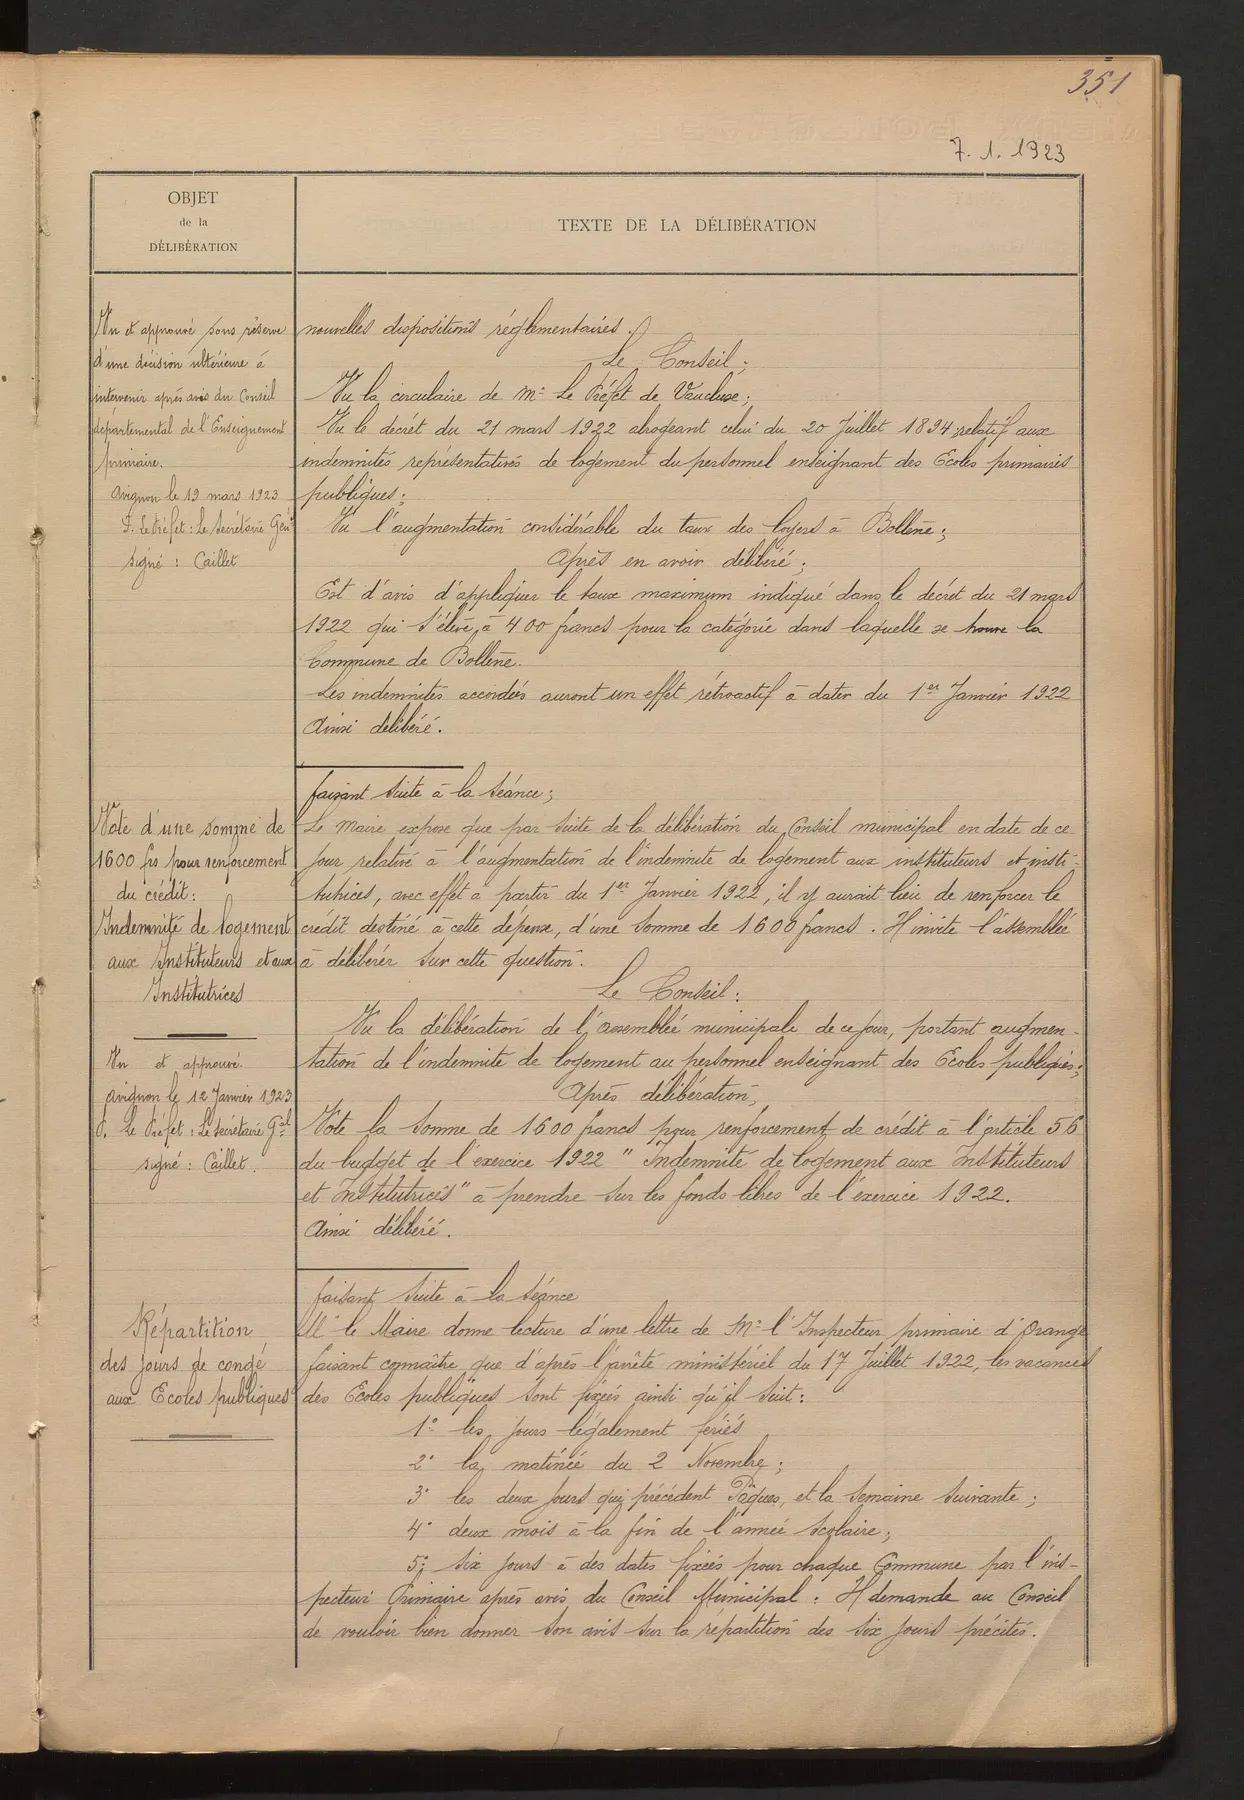 351
7. 1. 1923
OBJET
de la
DÉLIBÉRATION
TEXTE DE LA DÉLIBÉRATION
Vu et approuvé sous réserve
d'une décision ultérieure à
intervenir après avis du Conseil
départemental de l'Enseignement
primaire.
Avignon le 19 mars 1923
P. Le Préfet : Le Secrétaire Gén^al
signé : Caillet
nouvelles dispositions réglementaires.
Le Conseil ;
Vu la circulaire de Mr Le Préfet de Vaucluse ;
Vu le décrét du 21 mars 1922 abrogeant celui du 20 Juillet 1894, relatif aux
indemnités représentatives de logement du personnel enseignant des Ecoles primaires
publiques ;
Vu l'augmentation considérable du taux des loyers à Bollène ;
Après en avoir délibéré ;
Est d'avis d'appliquer le taux maximum indiqué dans le décrét du 21 mars
1922 qui s'élève à 400 francs pour la catégorie dans laquelle se trouve la
Commune de Bollène.
Les indemnités accordées auront un effet rétroactif à dater du 1er Janvier 1922
Ainsi délibéré.
Vote d'une somme de
1600 frs pour renforcement
du crédit :
Indemnité de logement
aux Instituteurs et aux
Institutrices
Vu et approuvé.
Avignon le 12 Janvier 1923
P. Le Préfet : Le Secrétaire Gal
signé : Caillet.
faisant suite à la séance ;
Le Maire expose que par suite de la délibération du Conseil municipal en date de ce
jour relative à l'augmentation de l'indemnité de logement aux instituteurs et insti-
tutrices, avec effet à partir du 1er Janvier 1922, il y aurait lieu de renforcer le
crédit destiné à cette dépense, d'une somme de 1600 francs. Il invite l'assemblée
à délibérer sur cette question.
Le Conseil :
Vu la délibération de l'assemblée municipale de ce jour, portant augmen-
tation de l'indemnité de logement au personnel enseignant des Ecoles publiques ;
Après délibération,
Vote la somme de 1600 francs pour renforcement de crédit à l'article 56
du budget de l'exercice 1922 " Indemnité de logement aux Instituteurs
et Institutrices " à prendre sur les fonds libres de l'exercice 1922.
Ainsi délibéré.
Répartition
des jours de congé
aux Ecoles publiques
faisant suite à la séance
Mr le Maire donne lecture d'une lettre de Mr l'Inspecteur primaire d'Orange
faisant connaître que d'après l'arrêté ministériel du 17 Juillet 1922, les vacances
des Ecoles publiques sont fixées ainsi qu'il suit :
1° les jours légalement fériés
2° la matinée du 2 Novembre ;
3° les deux jours qui précédent Pâques, et la semaine suivante ;
4° deux mois à la fin de l'année scolaire ;
5° six jours à des dates fixées pour chaque Commune par l'ins-
pecteur Primaire après avis du Conseil Municipal : Il demande au Conseil
de vouloir bien donner son avis sur la répartition des six jours précités.